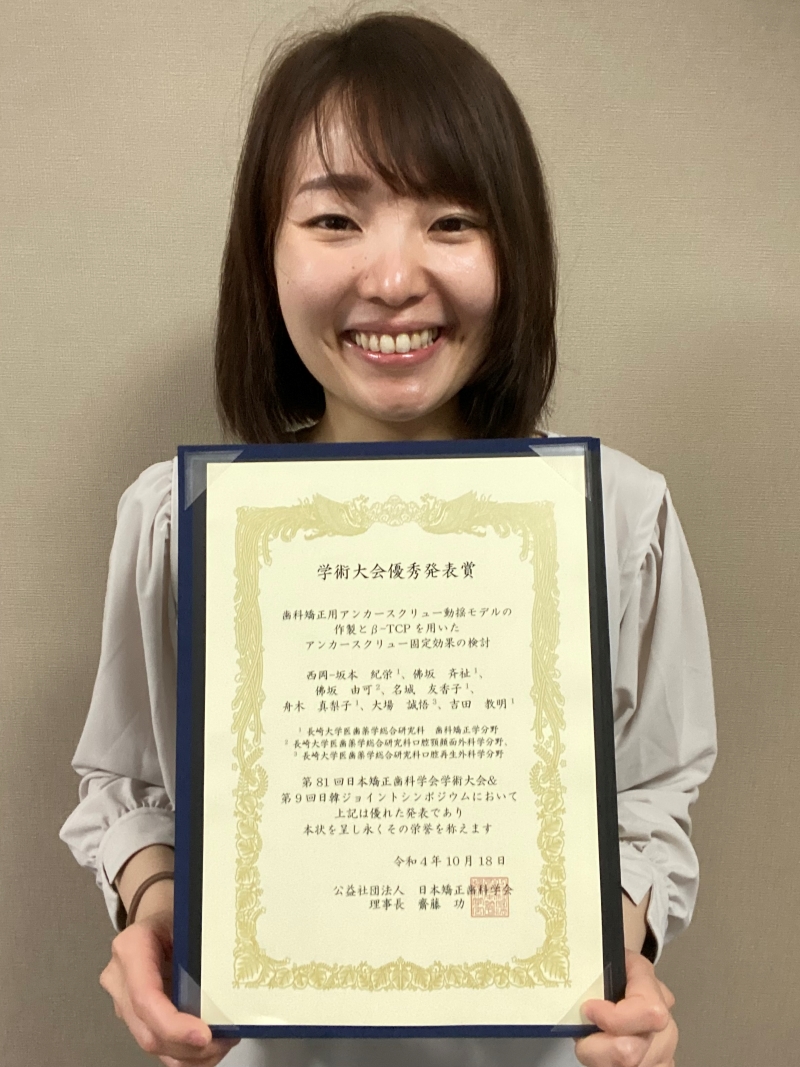 学術大会優秀発表賞
歯科矯正用アンカースクリュー動揺モデルの
作製とβ-TCPを用いた
アンカースクリュー固定効果の検討
西岡-坂本 紀栄¹、佛坂 斉祉¹、
佛坂 由可²、名城 友香子¹、
舟木 真梨子¹、大場 誠悟³、吉田 教明¹
¹ 長崎大学医歯薬学総合研究科 歯科矯正学分野
² 長崎大学医歯薬学総合研究科口腔顎顔面外科学分野、
³ 長崎大学医歯薬学総合研究科口腔再生外科学分野
第81回日本矯正歯科学会学術大会&
第9回日韓ジョイントシンポジウムにおいて
上記は優れた発表であり
本状を呈し永くその栄誉を称えます
令和4年10月18日
公益社団法人 日本矯正歯科学会
理事長 齋藤 功